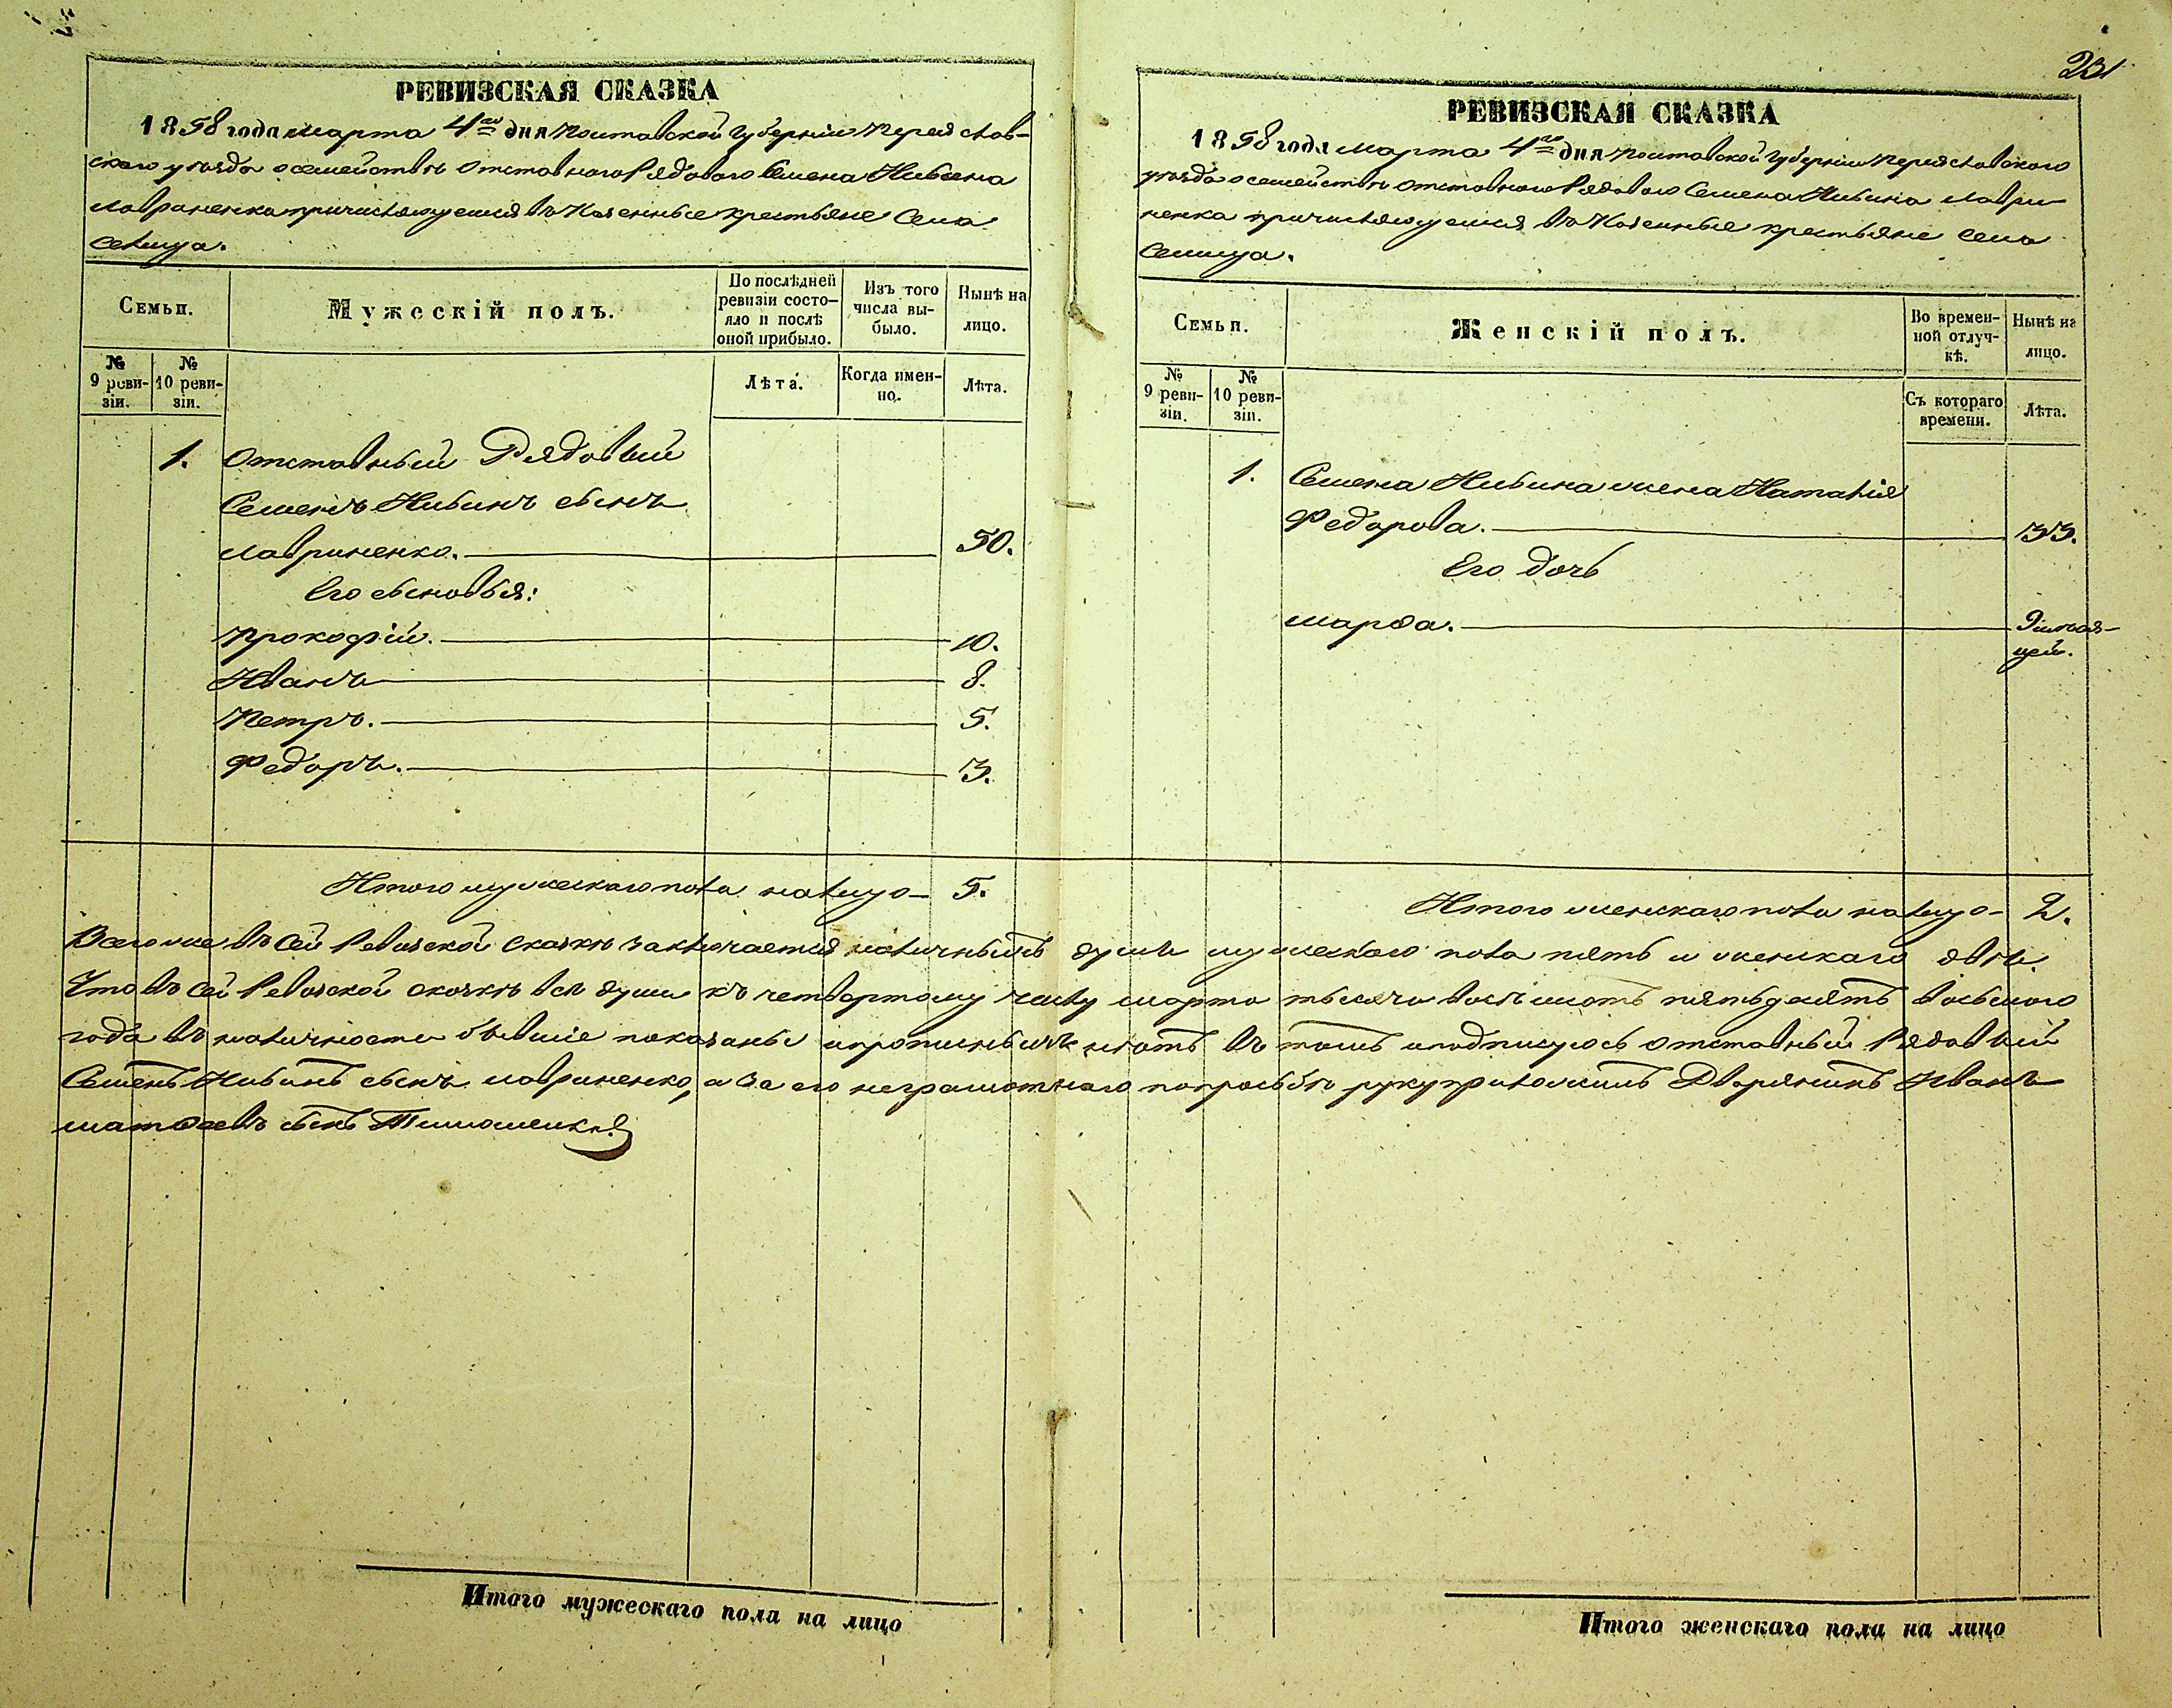 231
РЕВИЗСКАЯ СКАЗКА
1858 года марта 4го дня Полтавской Губерніи Переяслав-
скаго уѣзда о семействѣ отставного Рядового Семена Кивина
Лавриненка причисляющемся въ Казенные крестьяне Села
Селища.
Семьи.
Мужескій полъ.
По послѣдней ревизіи состо-
яло и послѣ оной прибыло.
Изъ того числа вы-
было.
Нынѣ на лицо.
№ 9 реви-
зіи.
№ 10 реви-
зіи.
Лѣта.
Когда имен-
но.
Лѣта.
1. Отставный Рядовый
Семенъ Кивинъ сынъ
Лавриненко. 50.
Его сыновья:
Прокофій. 10.
Иванъ 8.
Петръ. 5.
Федоръ. 3.
Итого мужескаго пола налицо 5.
РЕВИЗСКАЯ СКАЗКА
1858 года марта 4го дня Полтавской Губерніи Переяславскаго
уѣзда о семействѣ отставного Рядового Семена Кивина Лаври-
ненка причисляющемся въ Казенные крестьяне Села
Селища.
Семьи.
Женскій полъ.
Во времен-
ной отлуч-
кѣ.
Нынѣ на лицо.
№ 9 реви-
зіи.
№ 10 реви-
зіи.
Съ котораго времени.
Лѣта.
1. Семена Кивина жена Наталія
Федорова. 33.
Его дочь
Марфа. 9 мѣся-
цей.
Итого женскаго пола налицо 2.
Всего же въ сей Ревизской сказкѣ заключается наличныхъ душъ мужескаго пола пять и женскаго двѣ.
Что въ сей Ревизской сказкѣ всѣ души къ четвертому числу марта тысяча восѣмсотъ пятьдесятъ восьмого
года въ наличности бывшіе показаны и прописныхъ нѣтъ въ томъ и подписуюсь отставный Рядовый
Семенъ Кивинъ сынъ Лавриненко, а за его неграмотнаго по просьбѣ руку приложилъ Дворянинъ Иванъ
Матфеевъ сынъ Тимошенко
Итого мужескаго пола на лицо
Итого женскаго пола на лицо